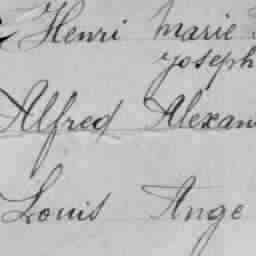 Henri Marie
Joseph
Alfred Alexan
Louis Ange